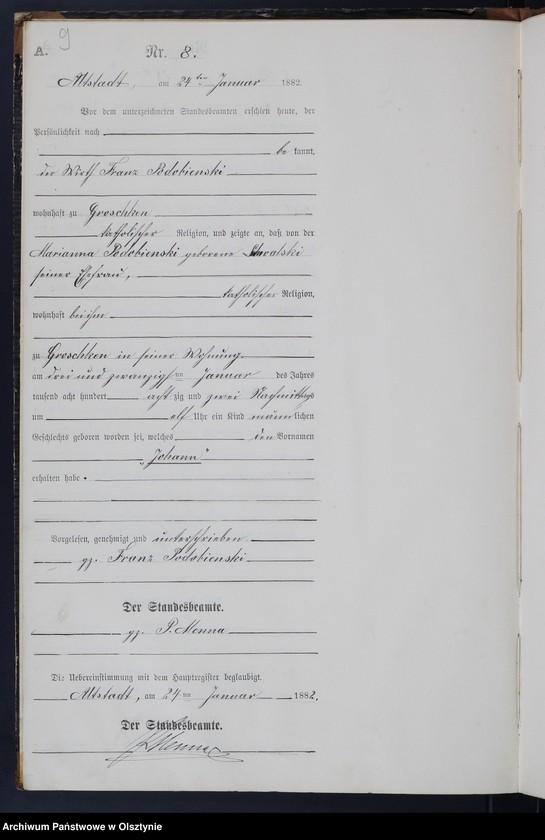 9
A.
Nr. 8.
Altstadt, am 24ten Januar 1882.
Vor dem unterzeichneten Standesbeamten erschien heute, der
Persönlichkeit nach
be kannt,
der Wirth Franz Podobienski
wohnhaft zu Groschken
katholischer Religion, und zeigte an, daß von der
Marianna Podobienski geborene
seiner Ehefrau,
katholischer Religion,
wohnhaft bei ihm
zu Groschken in seiner Wohnung
am drei und zwanzigsten Januar des Jahres
tausend acht hundert acht zig und zwei Nachmittags
um elf Uhr ein Kind männlichen
Geschlechts geboren worden sei, welches den Vornamen
"Johann"
erhalten habe.
Vorgelesen, genehmigt und unterschrieben
gz. Franz Podobienski
Der Standesbeamte.
gz. P. Menna
Die Uebereinstimmung mit dem Hauptregister beglaubigt.
Altstadt, am 24ten Januar 1882.
Der Standesbeamte.
Menna
Archiwum Państwowe w Olsztynie